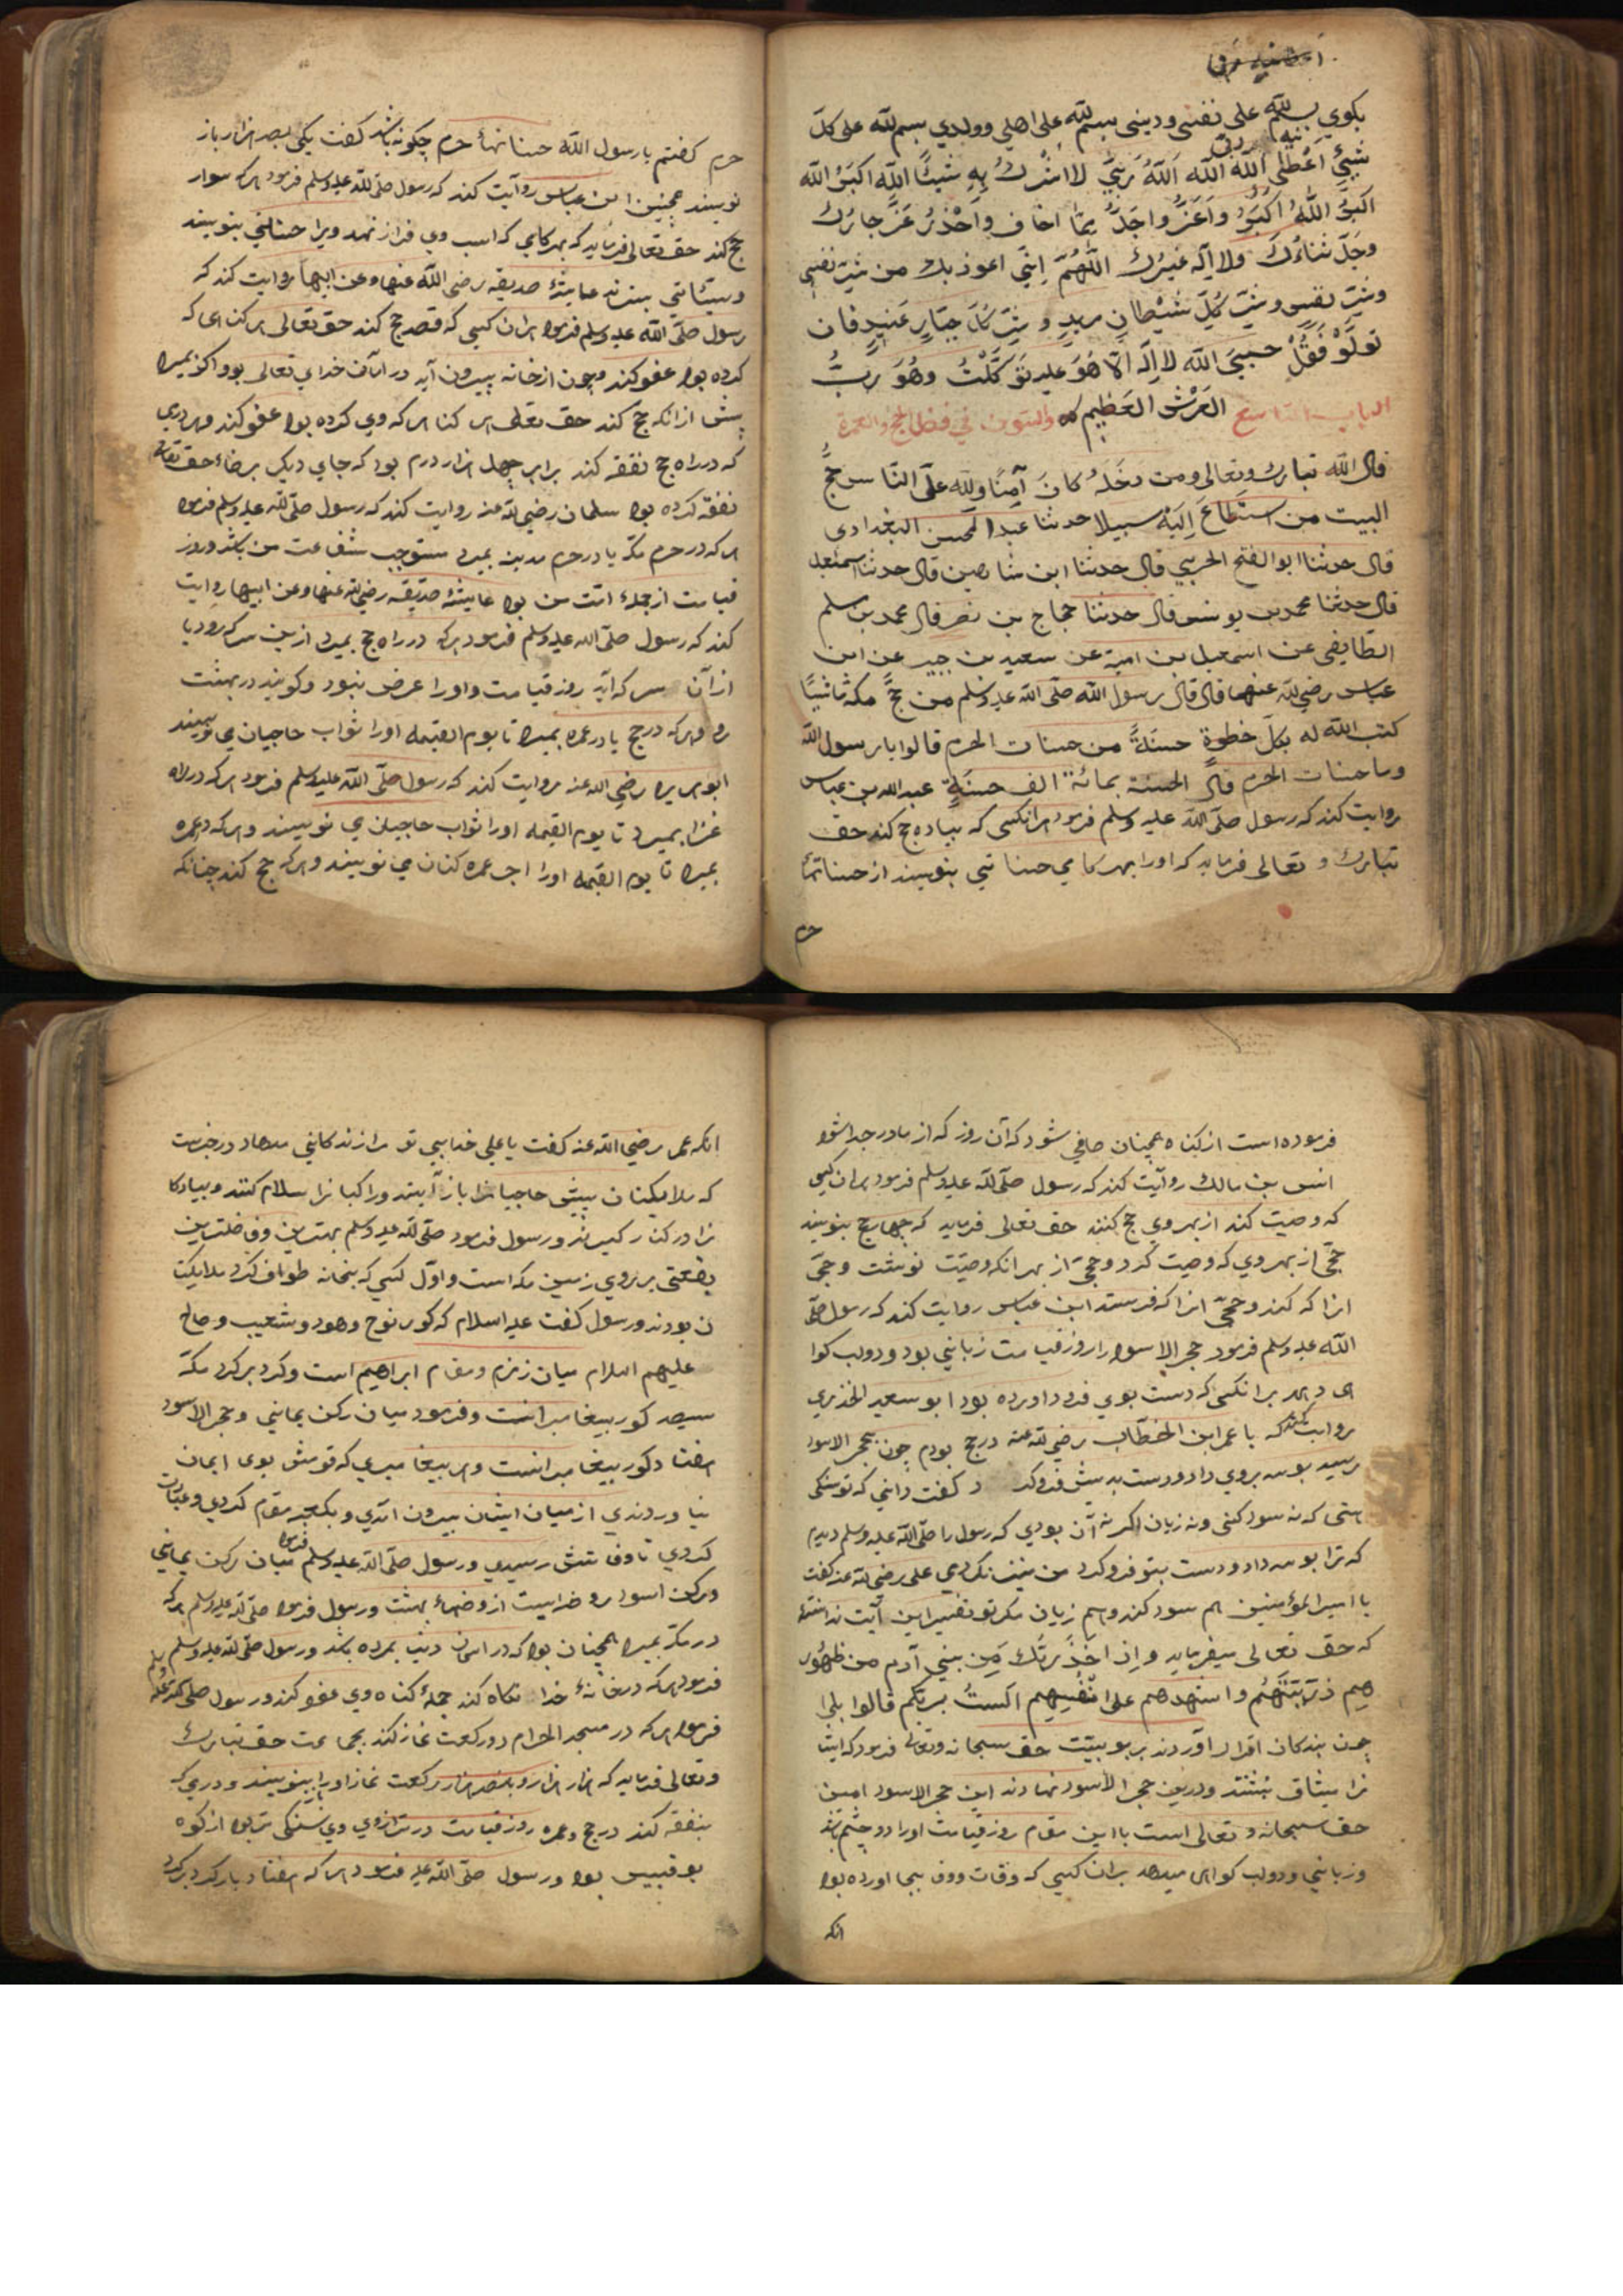 بکوی بسم الله علی نفسی ودینی بسم الله علی اهلی وولدی بسم الله علی کل
شیئ اعطانیه ربی الله الله الله ربی لا اشرك به شیئًا الله اکبر الله
اکبر الله اکبر واعز واجل مما اخاف واحذر عز جارك
وجل ثناؤك ولا اله غیرك اللهم انی اعوذ بك من شر نفسی
ومن شر کل شیطان مرید و شر کل جبار عنید فان
تولو فقل حسبی الله لا اله الا هو علیه توکلت وهو رب
العرش العظیم الباب التاسع والستون فی فضل الحج والعمرة
قال الله تبارك وتعالی ومن دخله کان آمنًا ولله علی الناس حج
البیت من استطاع الیه سبیلا حدثنا عبد المحسن البغدادی
قال حدثنا ابو الفتح الحربی قال حدثنا ابن شاهین قال حدثنا اسمعیل
قال حدثنا محمد بن یونس قال حدثنا حجاج بن نصر قال محمد بن مسلم
الطایفی عن اسمعیل بن امیة عن سعید بن جبیر عن ابن
عباس رضی الله عنهما قال قال رسول الله صلی الله علیه وسلم من حج مکه ماشیًا
کتب الله له بکل خطوة حسنةً من حسنات الحرم قالوا یا رسول الله
وما حسنات الحرم قال الحسنة بمائة الف حسنةٍ عبد الله بن عباس
روایت کند که رسول صلی الله علیه وسلم فرمود هر انکسی که پیاده حج کند حق
تبارك و تعالی فرماید که او را بهر کامی حسناتی بنویسند از حسناتهاء
حرم
حرم کفتم یا رسول الله حسناتهاء حرم چکونه باشد کفت یکی بصد هزار باز
نویسند همچنین ابن عباس روایت کند که رسول صلی الله علیه وسلم فرمود هر که سوار
حج کند حق تعالی فرماید که بهر کامی که اسب وی فراز نهد ویرا حسناتی بنویسند
وسیئاتی بستانند عایشهٔ صدیقه رضی الله عنها وعن ابیها روایت کند که
رسول صلی الله علیه وسلم فرمود هر ان کسی که قصد حج کند حق تعالی هر کناهی که
کرده بود عفو کند وچون از خانه بیرون آید در امان خدای تعالی بود واکر بمیرد
پیش از انکه حج کند حق تعالی هر کناهی که وی کرده بود عفو کند وهر درمی
که در راه حج نفقه کند برابر چهل هزار درم بود که جای دیکر برضاء حق تعالی
نفقه کرده بود سلمان رضی الله عنه روایت کند که رسول صلی الله علیه وسلم فرمود
هر که در حرم مکه یا در حرم مدینه بمیرد مستوجب شفاعت من باشد وروز
قیامت از جملهٔ امت من بود عایشهٔ صدیقه رضی الله عنها وعن ابیها روایت
کند که رسول صلی الله علیه وسلم فرمود هر که در راه حج بمیرد ازین سر که رود یا
از آن سر که آید روز قیامت و او را عرض نبود وکویند در بهشت
رو وهر که در حج یا در عمره بمیرد تا یوم القیمه او را ثواب حاجیان می نویسند
ابو هریره رضی الله عنه روایت کند که رسول صلی الله علیه وسلم فرمود هر که در راه
غزا بمیرد تا یوم القیمه او را ثواب حاجیان می نویسند وهر که در عمره
بمیرد تا یوم القیمه او را اجر عمره کنان می نویسند وهر که حج کند چنانکه
فرموده است از کناه همچنان صافی شود که آن روز که از مادر جدا شود
انس بن مالك روایت کند که رسول صلی الله علیه وسلم فرمود هر ان کسی
که وصیت کند از بهر وی حج کنند حق تعالی فرماید که چهار حج بنویسند
حجی از بهر وی که وصیت کرد وحجی از بهر انکه وصیت نوشت وحجی
انرا که کند وحجی انرا که فرستد ابن عباس روایت کند که رسول صلی
الله علیه وسلم فرمود حجر الاسود را روز قیامت زبانی بود ودولب کوا
هی دهد بر انکسی که دست بوی فرود اورده بود ابو سعید الخدری
روایت کند که با عمر ابن الخطاب رضی الله عنه در حج بودم چون بحجر الاسود
رسید بوسه بروی داد ودست بدیش فرو کرد و کفت دانی که تو سنکی
هستی که نه سود کنی ونه زیان اکر نه آن بودی که رسول را صلی الله علیه وسلم دیدم
که ترا بوسه داد ودست بتو فرو کرد من نیز نکردمی علی رضی الله عنه کفت
یا امیر المؤمنین هم سود کند وهم زیان مکر تو تفسیر این آیت ندانستهٔ
که حق تعالی میفرماید واذ اخذ ربك من بنی آدم من ظهور
هم ذریتهم واشهدهم علی انفسهم الست بربکم قالوا بلی
چون بندکان اقرار اوردند بربوبیت حق سبحانه وتعالی فرمود که ایشا
نرا میثاق نبشتند ودرین حجر الاسود نهادند این حجر الاسود امین
حق سبحانه و تعالی است با این مقام روز قیامت او را دو چشم باشد
وزبانی ودولب کواهی میدهد بران کسی که وفات ووفا بجا اورده بود
انکه
انکه عمر رضی الله عنه کفت یا علی خدایی تو مرا زندکانی مدهاد در خدمت
که ملایکتان پیش حاجیانرا باز آیند وراکبانرا سلام کنند وپیادکا
نرا در کنار کیرند ورسول فرمود صلی الله علیه وسلم بهترین وفاضلترین
بقعتی بر روی زمین مکه است واول کسی که بخانه طواف کرد ملایکتا
ن بودند ورسول کفت علیه السلام که کور نوح وهود وشعیب وصالح
علیهم السلام میان زمزم ومقام ابراهیم است وکرد بر کرد مکه
سیصد کور پیغامبرانست وفرمود میان رکن یمانی وحجر الاسود
هفتاد کور پیغامبرانست وهر پیغامبری که قومش بوی ایمان
نیاوردندی از میان ایشان بیرون آمدی وبکعبه مقام کردی وعبادت
کردی تا وفاتش رسیدی ورسول صلی الله علیه وسلم فرمود میان رکن یمانی
ورکن اسود روضه ایست از روضهاء بهشت ورسول فرمود صلی الله علیه وسلم هر که
در مکه بمیرد همچنان بود که در اسمان دنیا بمرده باشد ورسول صلی الله علیه وسلم
فرمود هر که در خانهٔ خدا نکاه کند جملهٔ کناه وی عفو کند ورسول صلی الله علیه وسلم
فرمود هر که در مسجد الحرام دو رکعت نماز کند بجماعت حق تبارك
وتعالی فرماید که هزار هزار وپانصد هزار رکعت نماز او را بنویسند ودرمی که
بنفقه کند در حج وعمره روز قیامت در ترازوی وی سنکی تر بود از کوه
بوقبیس بود ورسول صلی الله علیه فرمود هر که هفتاد بار کرد بر کرد